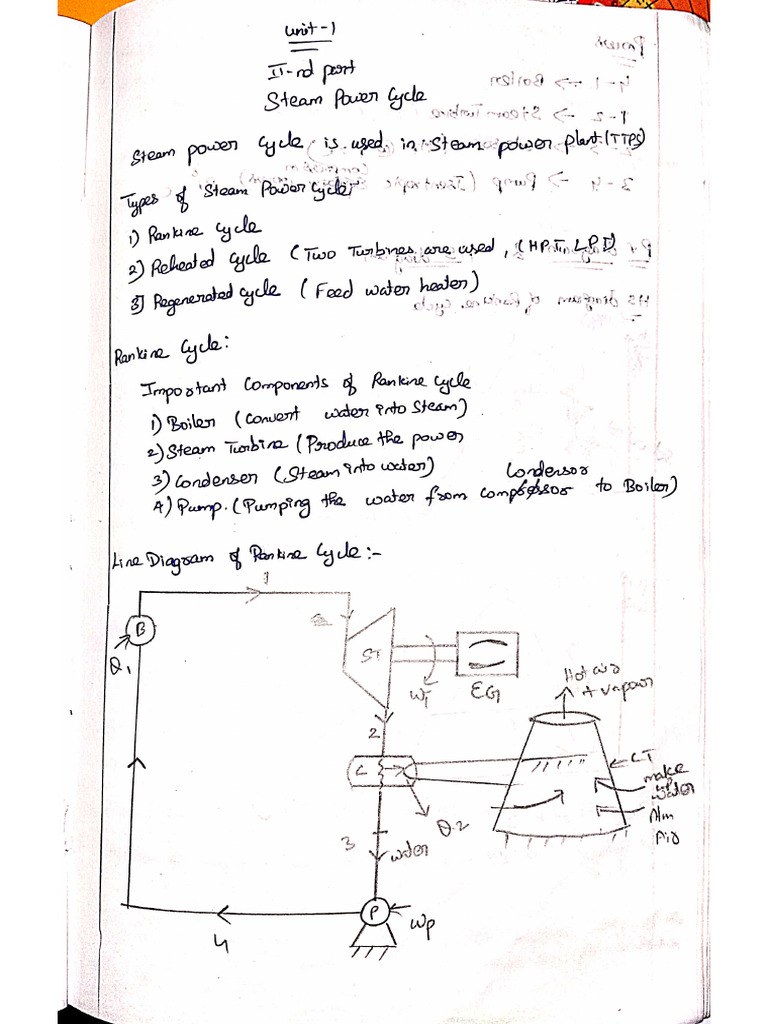 Unit-1
II-nd part
Steam Power Cycle
Steam power cycle is used in steam power plant (TTPS)
Types of Steam Power Cycle
1) Rankine Cycle
2) Reheated Cycle (Two Turbines are used, (HPT LPT)
3) Regenerated cycle (Feed water heater)
Rankine Cycle:
Important Components of Rankine Cycle
1) Boiler (Convert water into Steam)
2) Steam Turbine (Produce the power
3) Condenser (Steam into water) Condensor
4) Pump. (Pumping the water from compressor to Boiler)
Line Diagram of Rankine Cycle:-
1
B
Q1
ST
WT
EG
Hot air
+ vapour
2
C
CT
make
up
water
Atm
Air
Q2
3
water
P
Wp
4